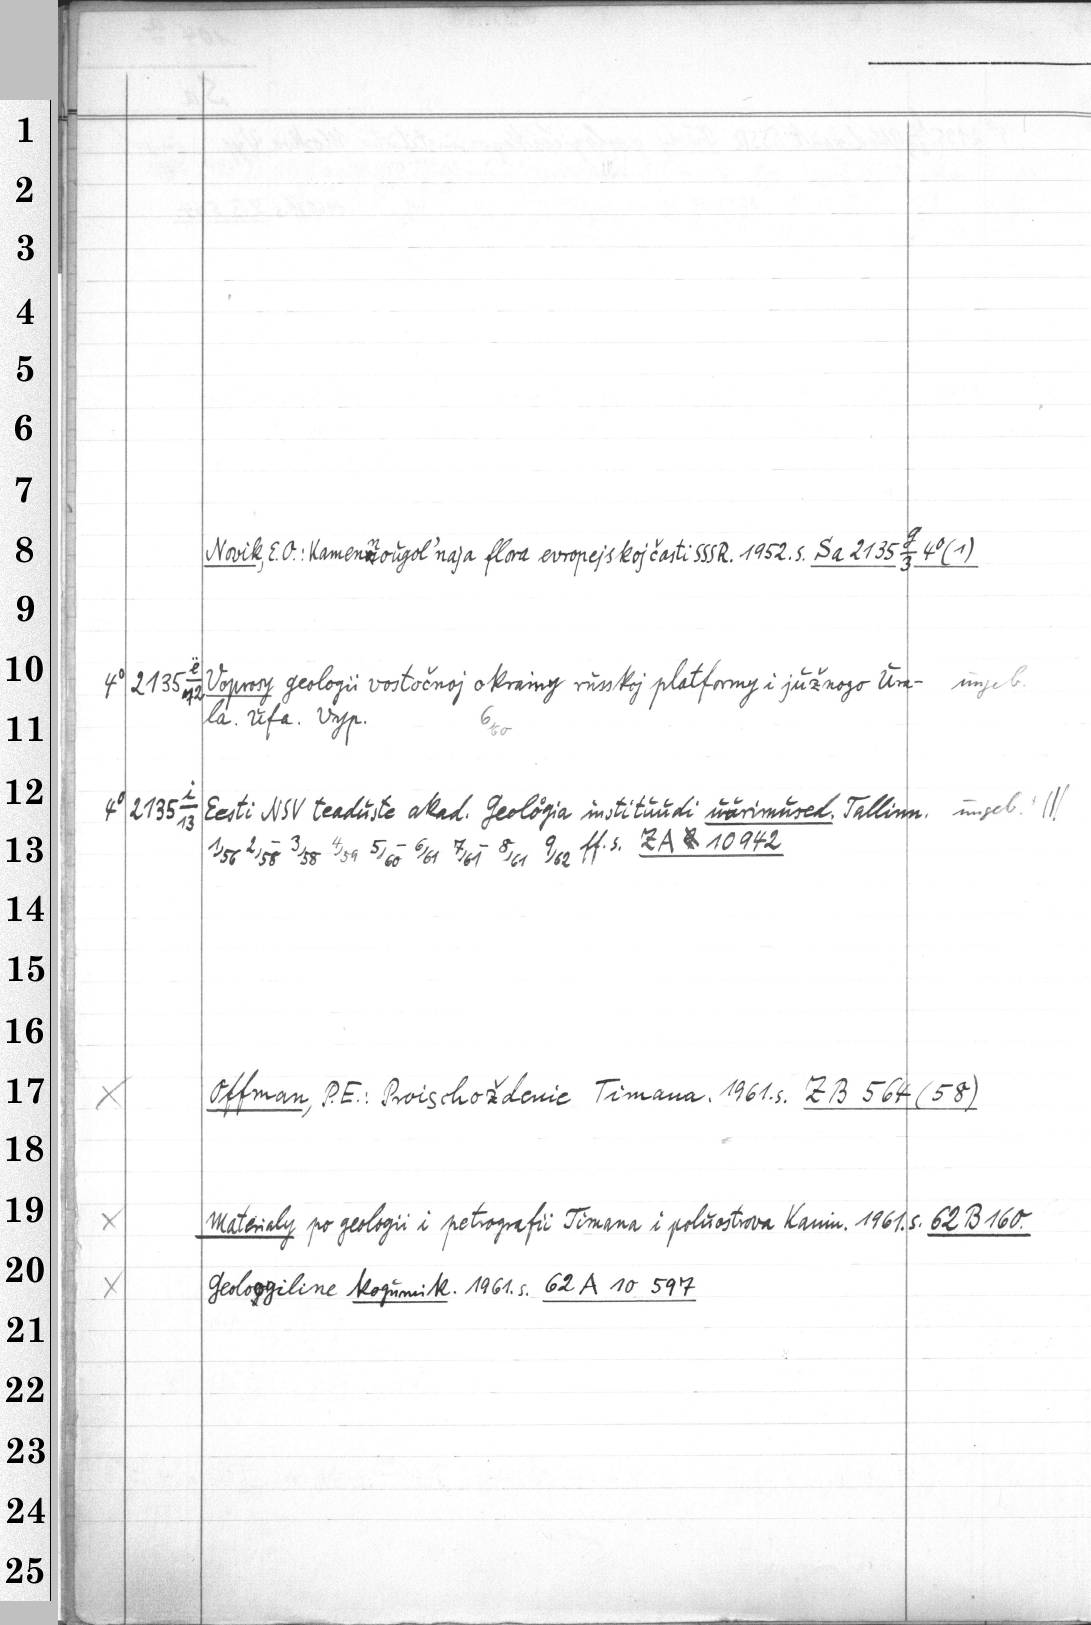 1
2
3
4
5
6
7
8 Novik, E.O.: Kamennougol'naja flora evropejskoj časti SSSR. 1952. s. Sa 2135 g/3 4° (1)
9
10 4° 2135 ë/12 Voprosy geologii vostočnoj okrainy russkoj platformy i južnogo Ura- ungeb.
11 la. Ufa. Vyp. 6/60
12 4° 2135 i/13 Eesti NSV teaduste akad. Geoloogia instituudi uurimused. Tallinn. ungeb.
13 1/56 2/58- 3/58 4/59 5/60- 6/61 7/61- 8/61 9/62 ff. s. ZA 10942
14
15
16
17 × Offman, P.E.: Proischoždenie Timana. 1961. s. ZB 564 (58)
18
19 × Materialy po geologii i petrografii Timana i poluostrova Kanin. 1961. s. 62 B 160.
20 × Geoloogiline kogumik. 1961. s. 62 A 10 597
21
22
23
24
25